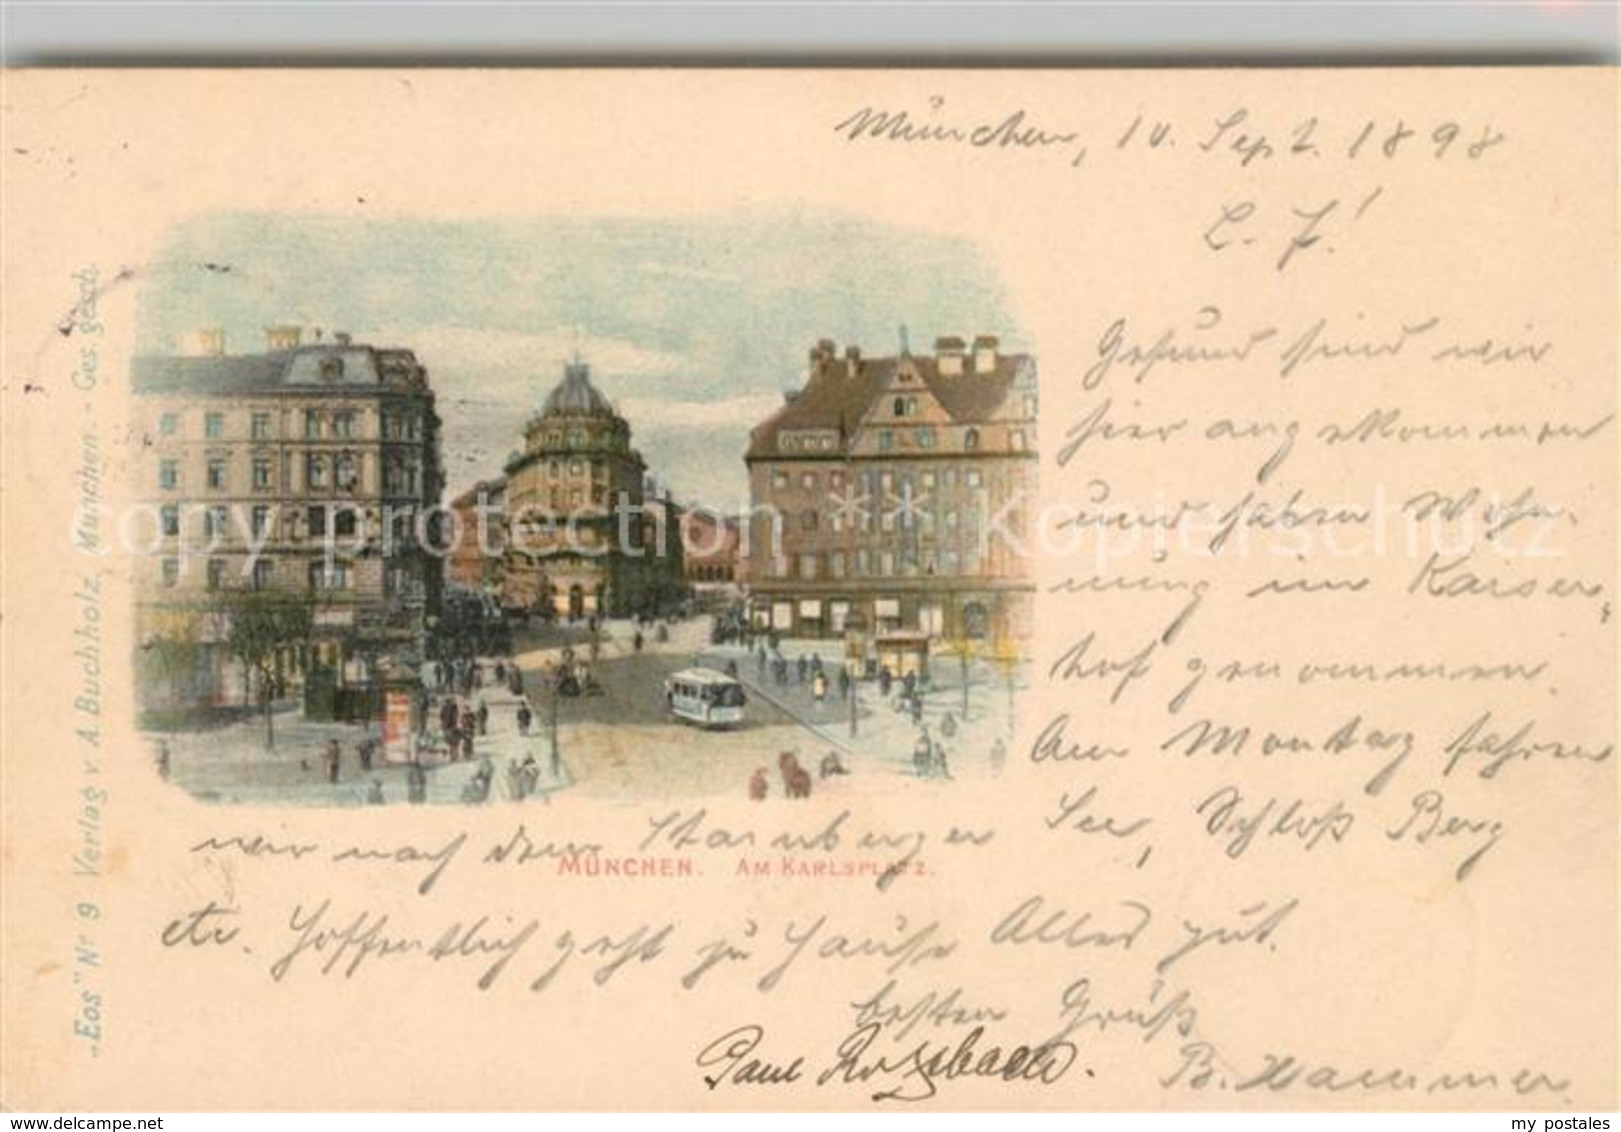 München, 10. Sept. 1898
L. F.!
Gesund sind wir
hier angekommen
und haben Woh-
nung im Kaiser-
hof genommen.
Am Montag fahren
wir nach dem Starnberger See, Schloß Berg
etc. Hoffentlich geht zu Hause Alles gut.
besten Gruß
B. Hammer
Paul
MÜNCHEN. AM KARLSPLATZ.
„Eos" Nr 9 Verlag v. A. Buchholz, München. - Ges. gesch.
copy protection ** Kopierschutz
www.delcampe.net
my_postales